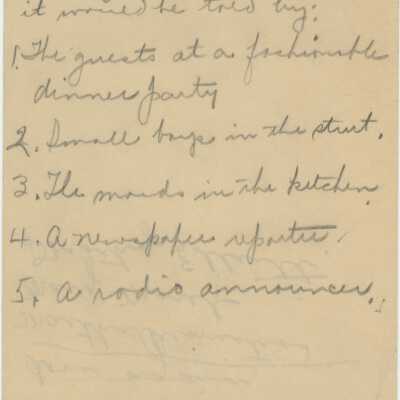 it would be told by:
1. The guests at a fashionable
dinner party
2. Small boys in the street.
3. The maids in the kitchen.
4. A newspaper reporter.
5. A radio announcer.